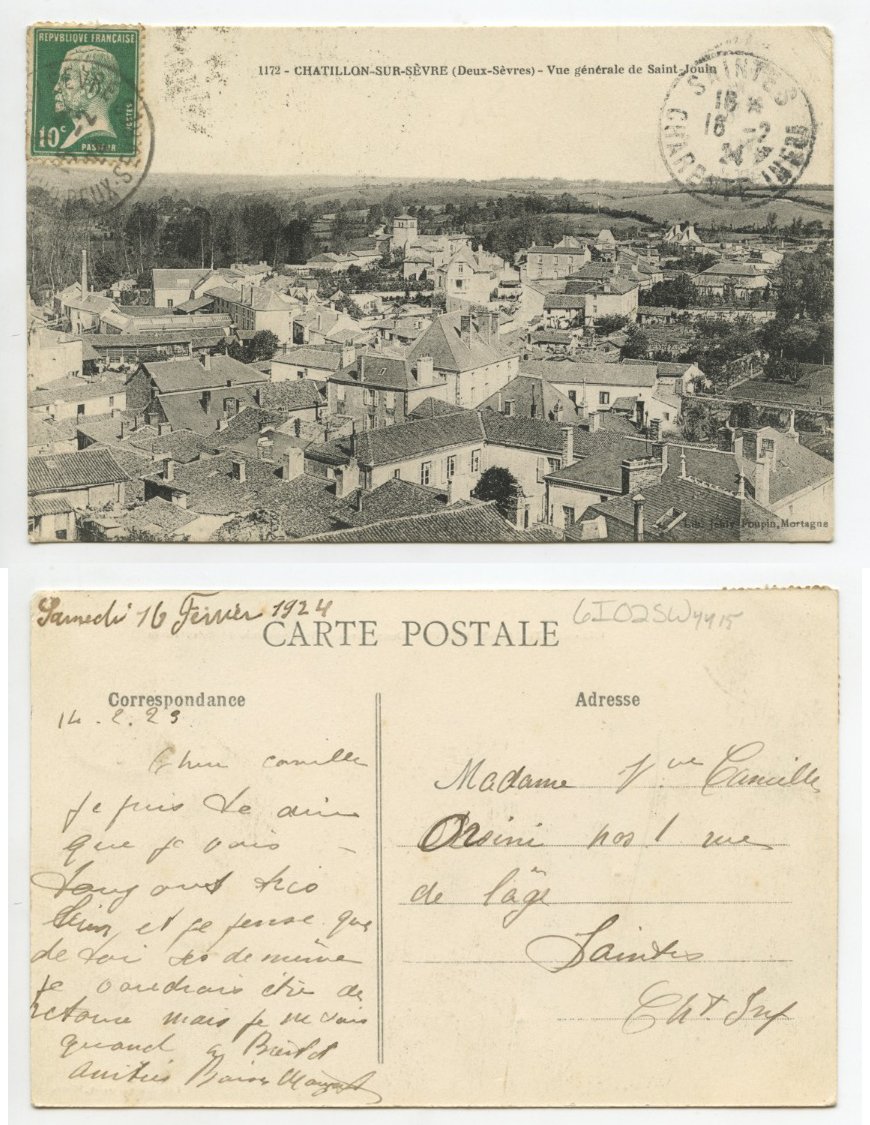 REPUBLIQUE FRANÇAISE
10c
POSTES
PASTEUR
1172 - CHATILLON-SUR-SÈVRE (Deux-Sèvres) - Vue générale de Saint-Jouin
SAINTES
16 *
16 -2
24
CHARENTE INFRE
Lib. Jehly-Poupin, Mortagne
Samedi 16 Fevrier 1924
CARTE POSTALE
6I02SW4415
Correspondance
Adresse
14.2.23
Cher camille
je puis te dire
que je vais -
toujours trés
bien, et je pense que
de toi de meme
je voudrais être de
retour mais je ne sais
quand a Bientot
Amitiés Baiser
Madame Vve Camille
Orsini no 1 rue
de l'âge
Saintes
Cht Inf